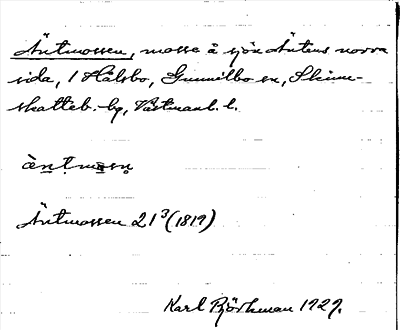 Äntmossen, mosse å sjön Äntens norra
sida, 1 Hålsbo, Gunnilbo sn, Skinn-
skatteb. bg, Västmanl. l.
äntmosn
Äntmossen 21³ (1819)
Karl Björkman 1929.